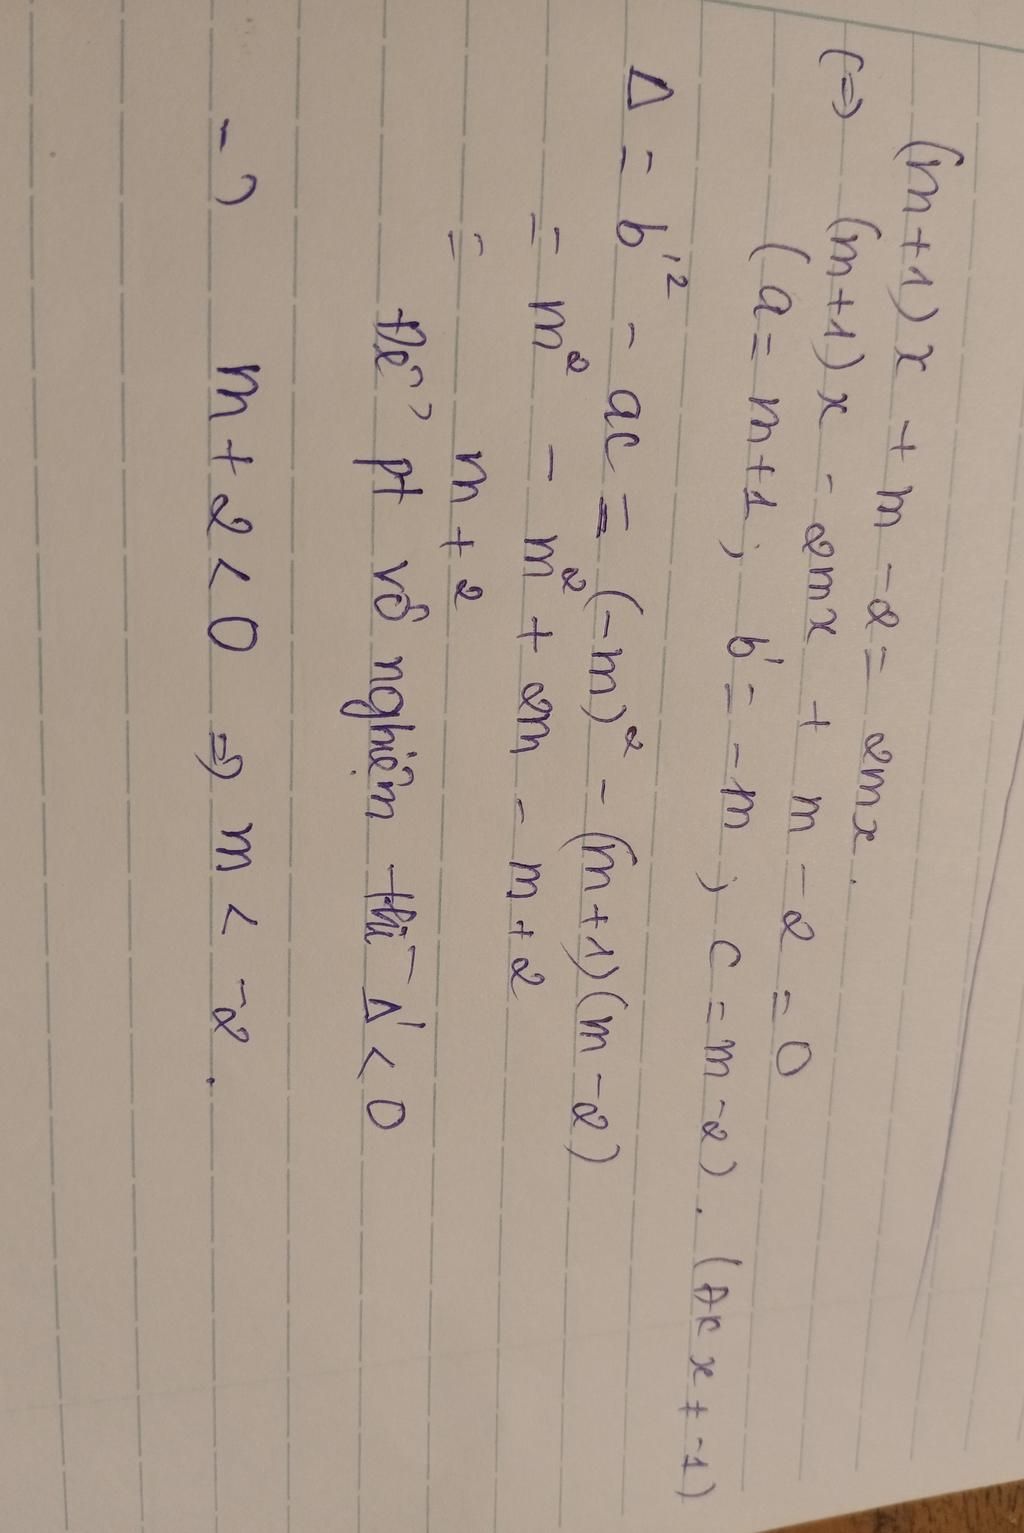 (m+1)x + m - 2 = 2mx.
(=) (m+1)x - 2mx + m - 2 = 0
(a = m+1; b' = -m; c = m-2). (ĐK x ≠ -1)
Δ = b'² - ac = (-m)² - (m+1)(m-2)
= m² - m² + 2m - m + 2
= m + 2
Để pt vô nghiệm thì Δ' < 0
-) m + 2 < 0 => m < -2.